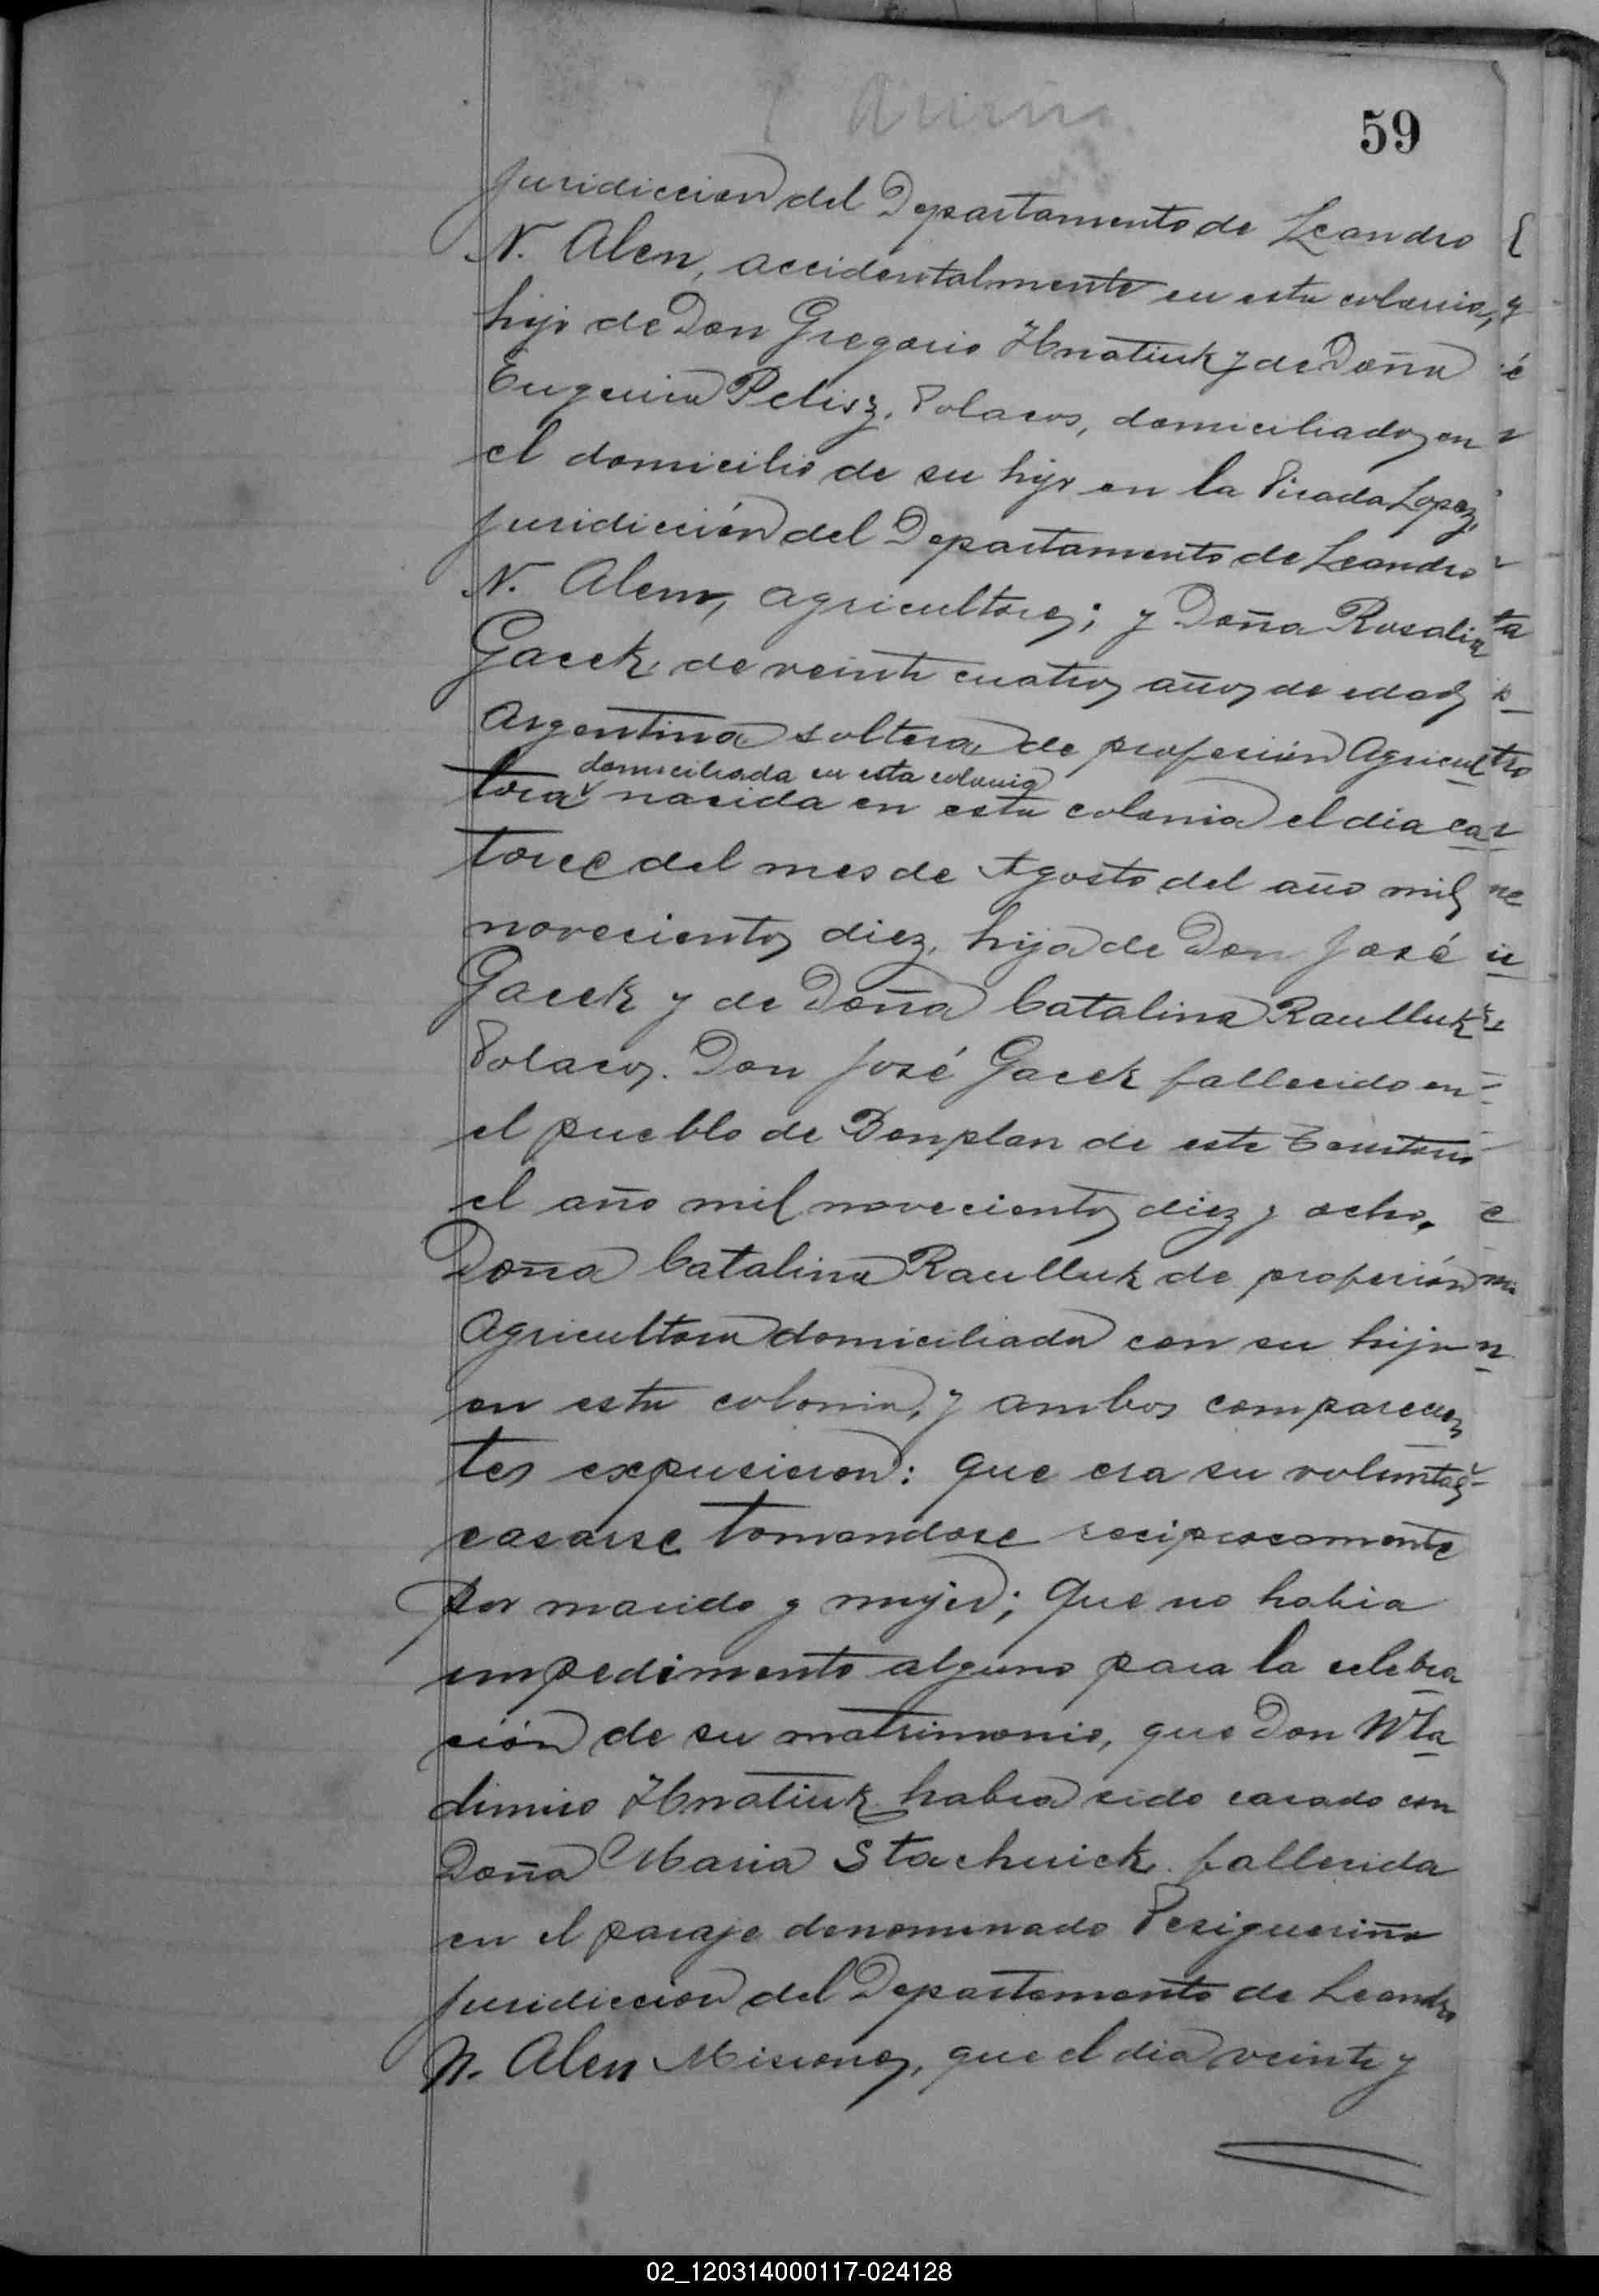 59
Juridiccion del Departamento de Leandro
N. Alen, accidentalmente en esta colonia,
hijo de Don Gregorio Hnatiuk y de Doña
Eugenia Pelisz, Polacos, domiciliados en
el domicilio de su hijo en la Picada Lopez,
juridicción del Departamento de Leandro
N. Alem, agricultores; y Doña Rosalia
Gacek, de veinte cuatro años de edad
Argentina soltera de profesión Agricul
domiciliada en esta colonia
tora nacida en esta colonia el dia ca
torce del mes de Agosto del año mil
novecientos diez, hija de Don José
Gacek y de Doña Catalina Raulluk
Polacos. Don José Gacek fallecido en
el pueblo de Bonplan de este Territorio
el año mil novecientos diez y ocho,
Doña Catalina Raulluk de profesión
Agricultora domiciliada con su hija
en esta colonia, y ambos comparecen
tes expusieron: que era su voluntad
casarse tomandose reciprocamente
por marido y mujer; que no habia
impedimento alguno para la celebra
ción de su matrimonio, que Don Wla
dimiro Hnatiuk habia sido casado con
Doña Maria Stachurick fallecida
en el paraje denominado Pesigueriña
juridiccion del Departamento de Leandro
N. Alen Misiones, que el dia veinte y
02_120314000117-024128